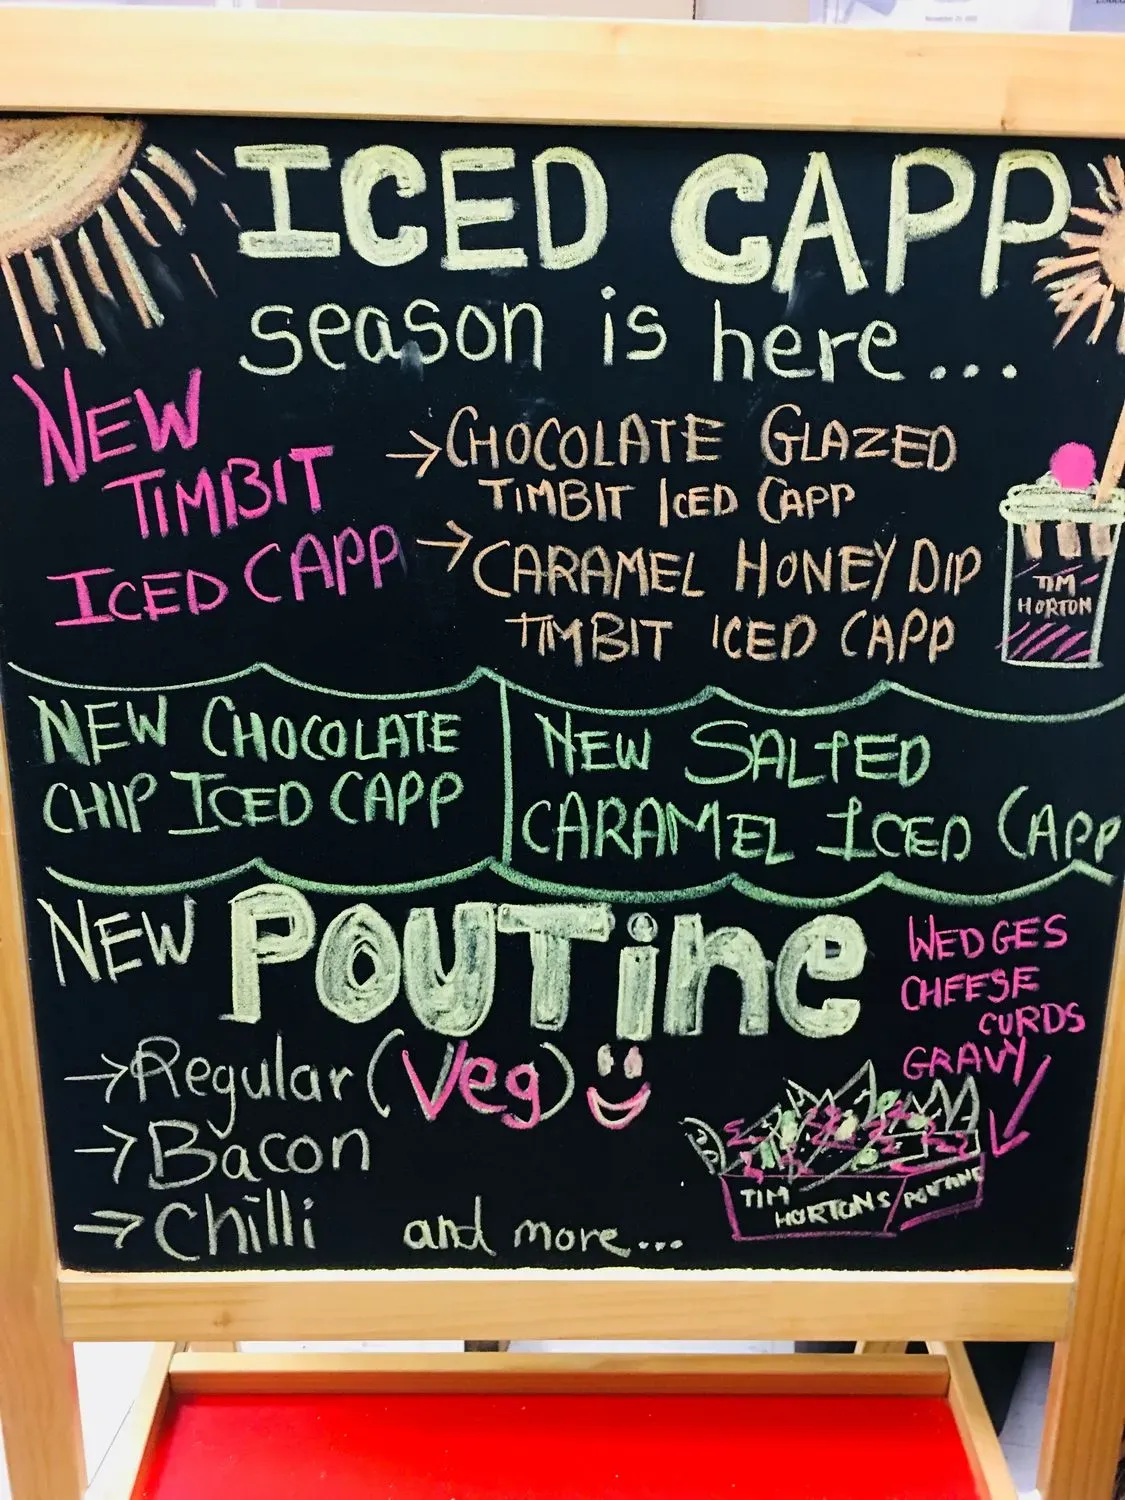 ICED CAPP
season is here...
NEW
TIMBIT
ICED CAPP
→ CHOCOLATE GLAZED
TIMBIT ICED CAPP
→ CARAMEL HONEY DIP
TIMBIT ICED CAPP
TIM
HORTON
NEW CHOCOLATE
CHIP ICED CAPP
NEW SALTED
CARAMEL ICED CAPP
NEW POUTine
WEDGES
CHEESE
CURDS
GRAVY
→ Regular (Veg)
→ Bacon
→ Chilli and more...
TIM
HORTONS
POUTINE